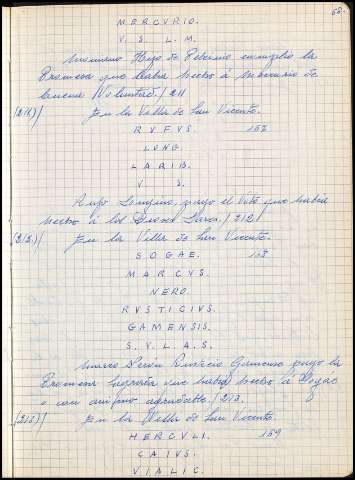 68.
MERCVRIO.
V. S. L. M.
Hijo de cumplio la
Promesa que habia hecho á Mercurio de
buena Voluntad. / 211
(211)/ En la Villa de San Vicente.
RVFVS. 157
LONG.
LARIB.
V. S.
Rufo Longino, pago el Voto que habia
hecho á los Dioses Lares. / 212
(212)/ En la Villa de San Vicente.
SOGAE. 158
MARCVS.
NERO.
RVSTICIVS.
GAMENSIS.
S. V. L. A. S.
Marco Nerón Rusticio Gamense pago la
Promesa que habia hecho á Sogae
con animo agradable. / 213.
(213)/ En la Villa de San Vicente.
HERCVLI. 159
CAIVS.
VIALIC.